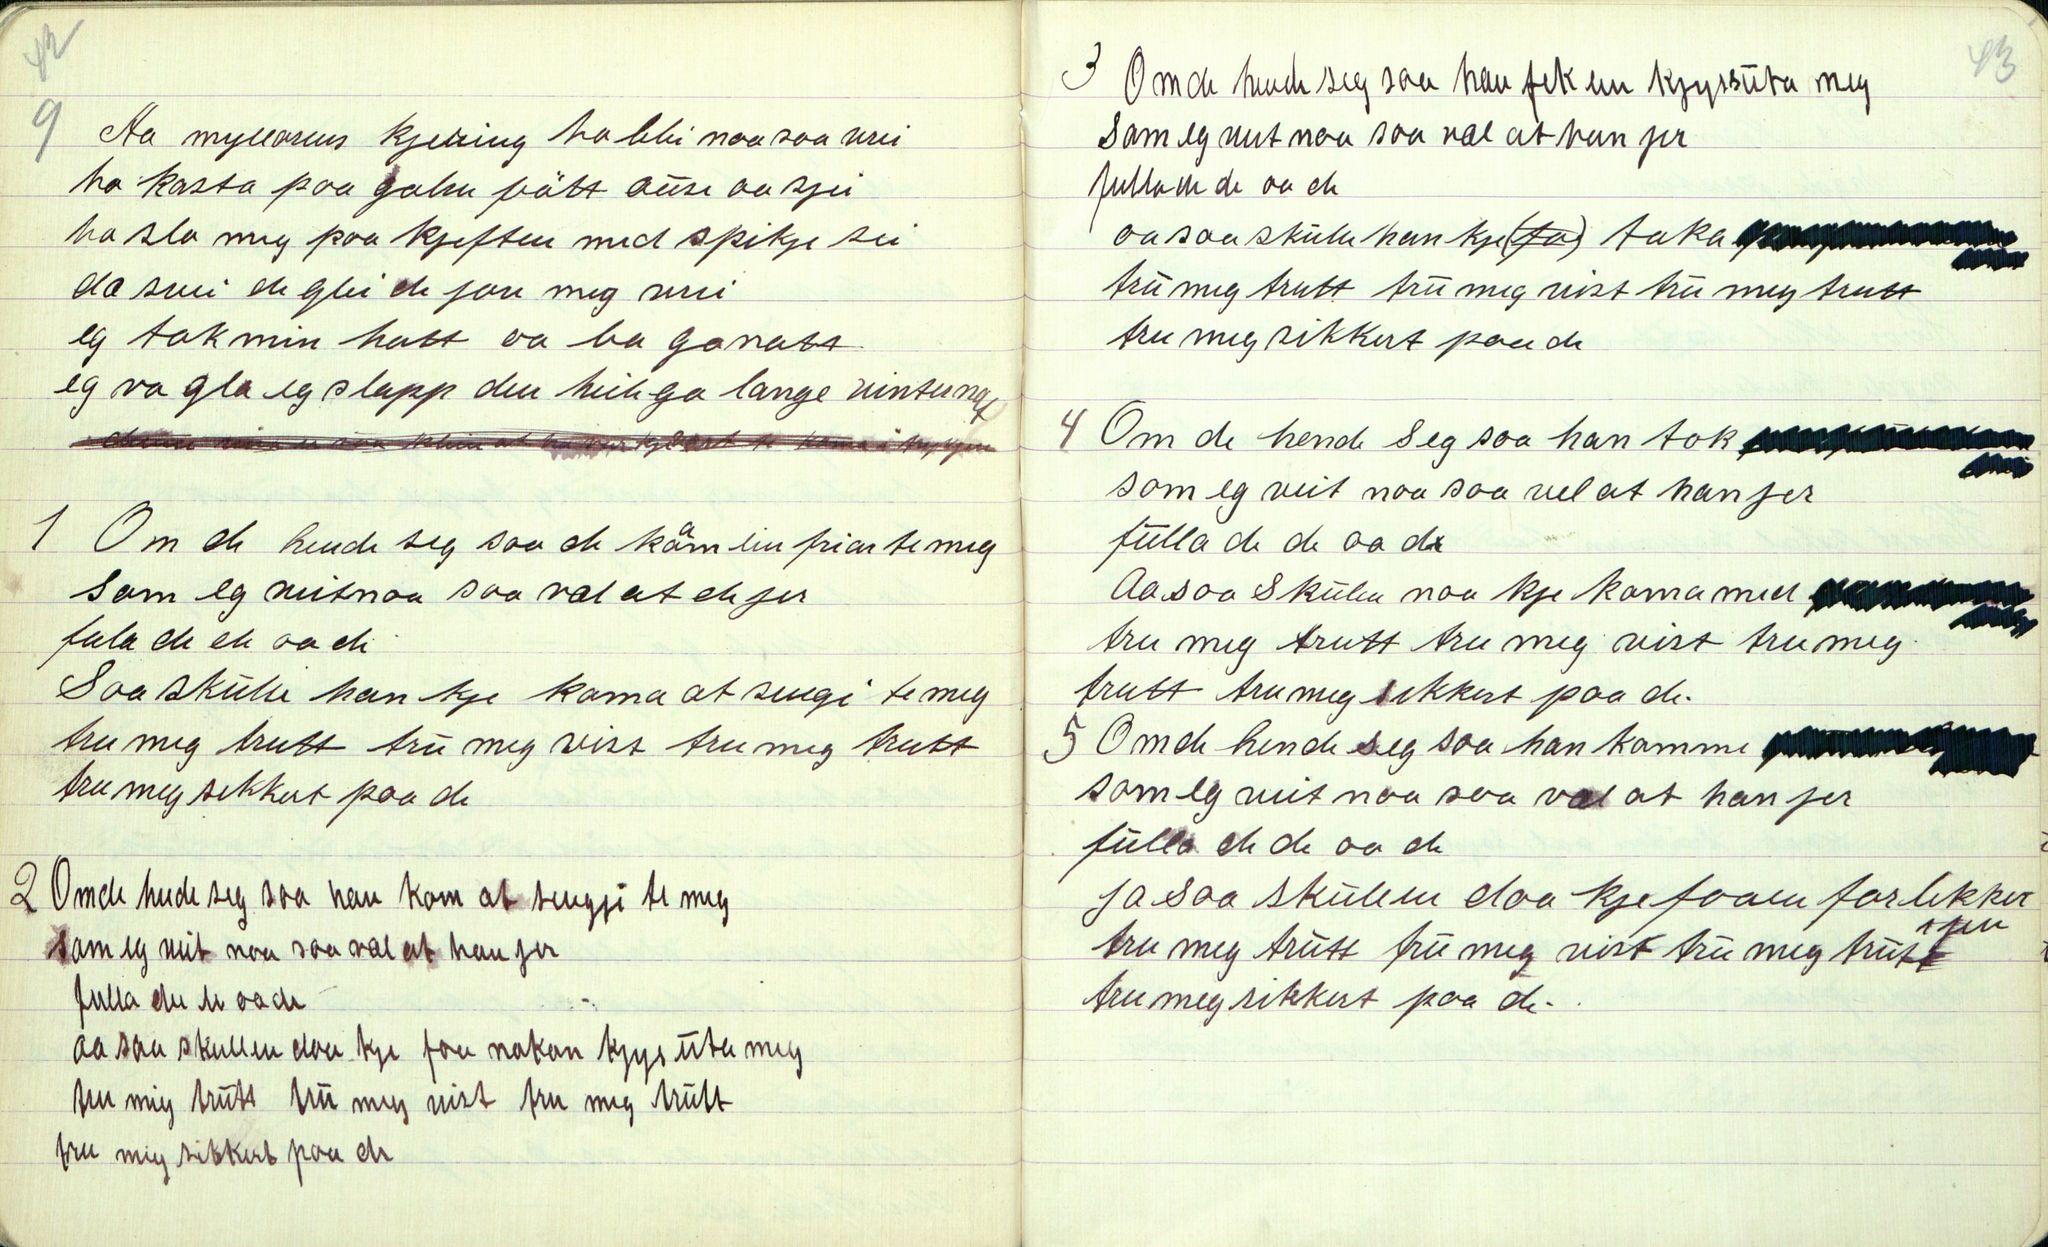 42
9 Aa myllarens kjering ho blei noa soa vrei
ho kasta poa golen bått ause oa sjei
ho slo meg poa kjeften med spikje sei
da svei de glei de jore meg vrei
eg tok min hatt oa ba gonatt
eg va gla eg slapp den heilga lange vinternatt
1 Om de hende seg soa de kåm ein friar te meg
som eg veit noa soa væl at de jer
fula de de oa de
Soa skülle han kje koma at sengi te meg
tru meg trutt trü meg vist tru meg trutt
tru meg sekkert poa de
2 Om de hende seg soa han kom at sengji te meg
som eg veit noa soa væl at han jer
fulla de de oa de
oa soa skullen doa kje foa nokon kjys üta meg
tru meg trütt trü meg vist tru meg trütt
tru meg sikkert poa de
43
3 Om de hende seg soa han fek ein kjyss üta meg
som eg veit noa soa væl at han jer
fulla de de oa de
oa soa sküle han kje (fo) taka
trü meg trutt trü meg vist trü meg trutt
tru meg sikkert poa de
4 Om de hende seg soa han tok
som eg veit noa soa vel at han jer
fülla de de oa de
Aa soa Skülen noa kje koma med
tru meg trutt tru meg vist tru meg
trutt tru meg sekkert poa de.
5 Om de hende seg soa han komme
som eg veit noa soa væl at han jer
fülla de de oa de
ja soa skülen doa kje foaen for lekker
tru meg trütt trü meg vist trü meg trütt
tru meg sikkert poa de.